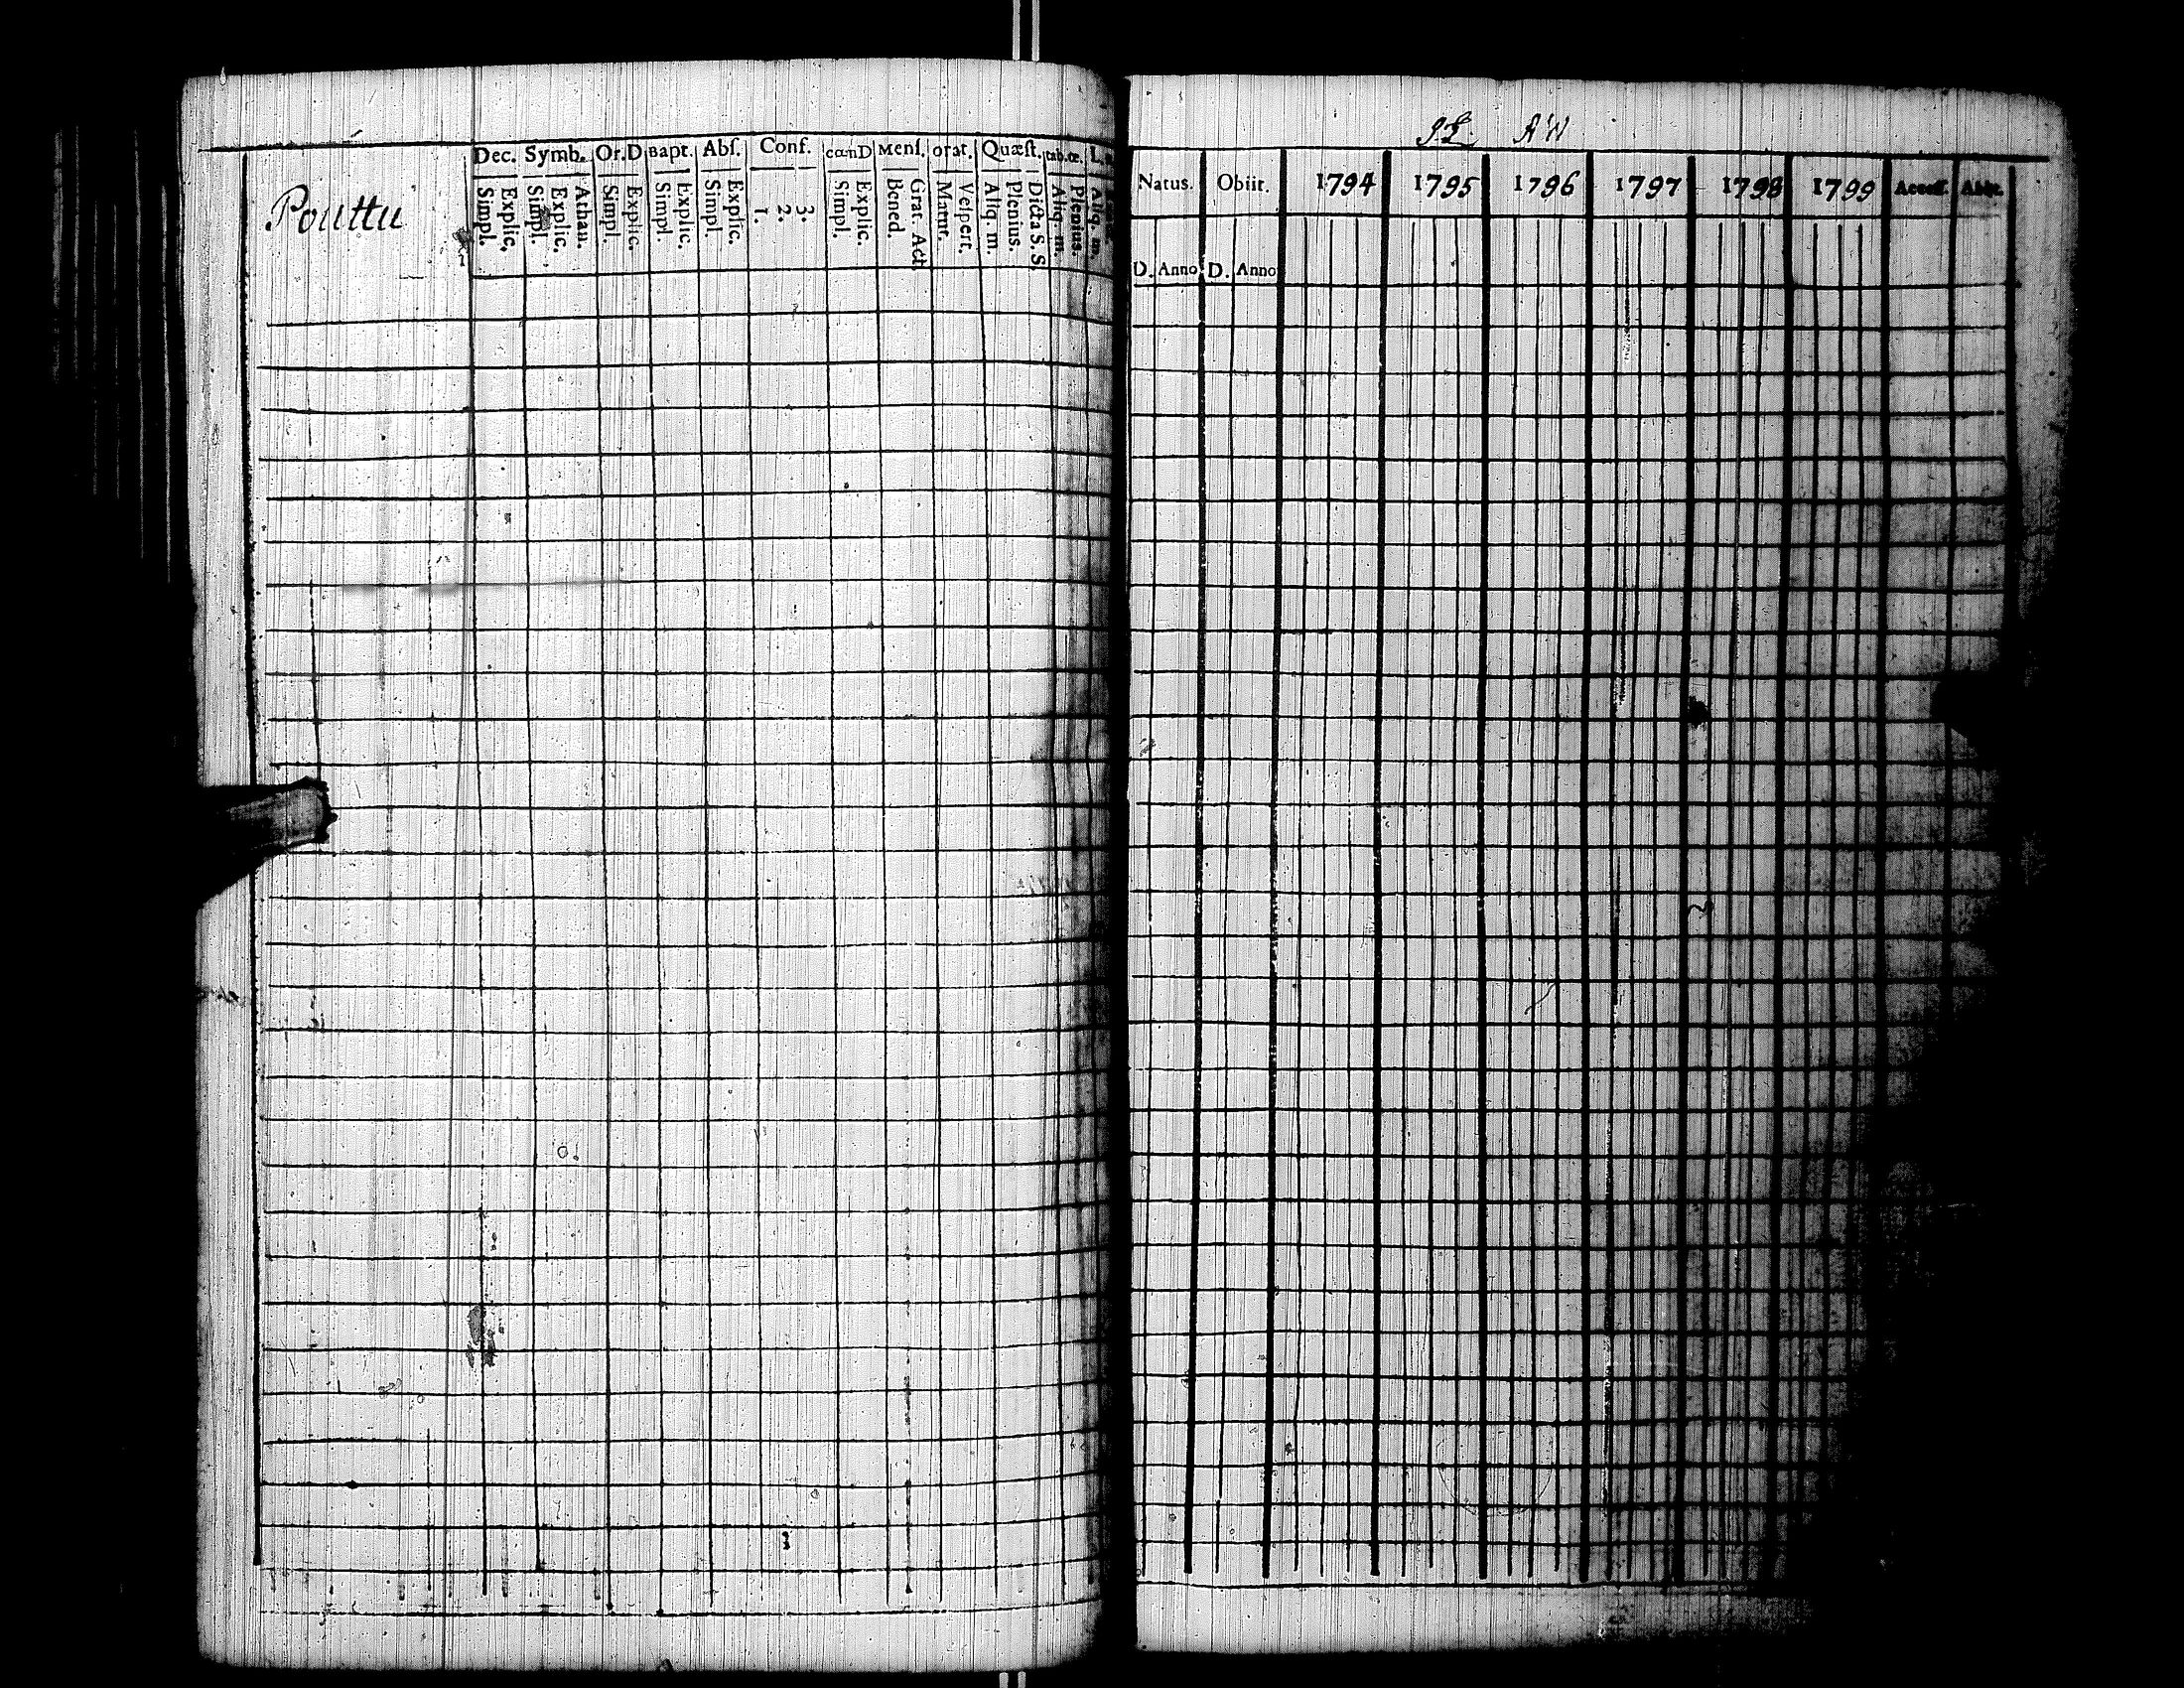 Pouttu
Dec. Symb. Or.D Bapt. Abſ. Conf. canD Menſ. orat. Quæſt. tab.œ. L.
Simpl. Explic. Simpl. Explic. Athan. Simpl. Explic. Simpl. Explic. Simpl. Explic. 1. 2. 3. Simpl. Explic. Bened. Grat. Act. Matut. Veſpert. Aliq. m. Plenius. Dicta S. S. Aliq. m. Plenius. Aliq. m.
Natus. Obiit. 1794 1795 1796 1797 1798 1799 Acceſſ. Abiit.
D. Anno D. Anno